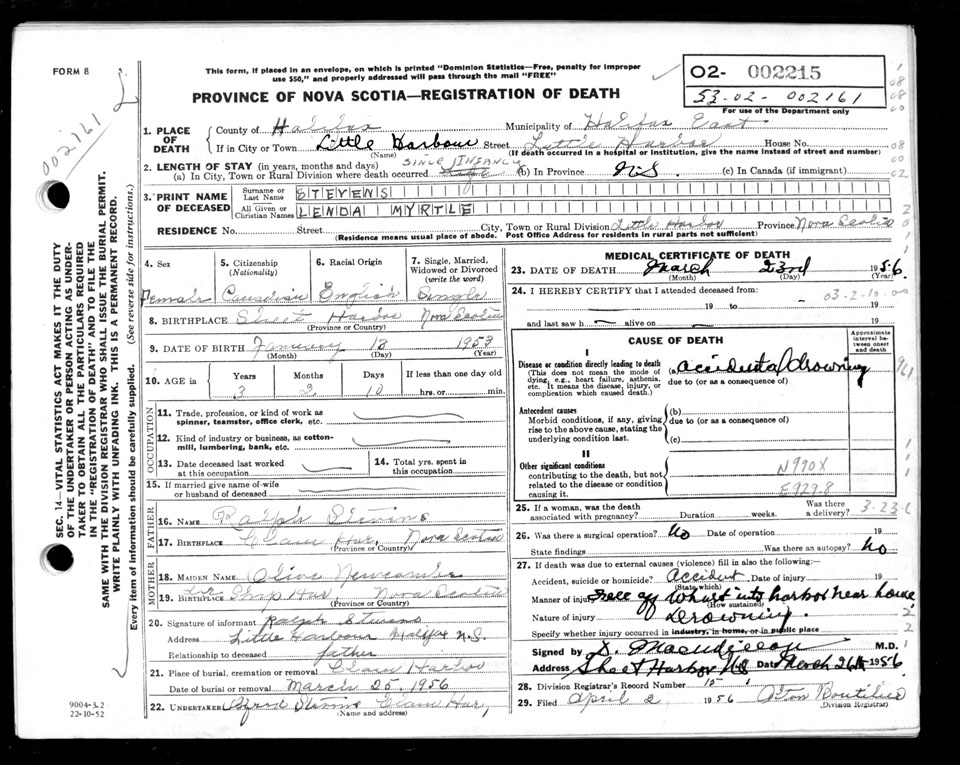 FORM 8
This form, if placed in an envelope, on which is printed "Dominion Statistics—Free, penalty for improper
use $50," and properly addressed will pass through the mail "FREE"
PROVINCE OF NOVA SCOTIA—REGISTRATION OF DEATH
02- 002215
53-02- 002161
For use of the Department only
002161
SEC. 14—VITAL STATISTICS ACT MAKES IT THE DUTY
OF THE UNDERTAKER OR PERSON ACTING AS UNDER-
TAKER TO OBTAIN ALL THE PARTICULARS REQUIRED
IN THE "REGISTRATION OF DEATH" AND TO FILE THE
SAME WITH DIVISION REGISTRAR WHO SHALL ISSUE THE BURIAL PERMIT.
WRITE PLAINLY WITH UNFADING INK. THIS IS A PERMANENT RECORD.
Every item of information should be carefully supplied. (See reverse side for instructions.)
1. PLACE OF DEATH
County of Halifax Municipality of Halifax East
If in City or Town Little Harbour Street Little Harbor House No.
(Name) (If death occurred in a hospital or institution, give the name instead of street and number)
2. LENGTH OF STAY (in years, months and days) SINCE INFANCY
(a) In City, Town or Rural Division where death occurred (b) In Province N.S. (c) In Canada (if immigrant)
3. PRINT NAME OF DECEASED
Surname or Last Name STEVENS
All Given or Christian Names LENDA MYRTLE
RESIDENCE No. Street City, Town or Rural Division Little Harbor Province Nova Scotia
(Residence means usual place of abode. Post Office Address for residents in rural parts not sufficient)
4. Sex Female
5. Citizenship (Nationality) Canadian
6. Racial Origin English
7. Single, Married, Widowed or Divorced (write the word) Single
8. BIRTHPLACE Sheet Harbor Nova Scotia
(Province or Country)
9. DATE OF BIRTH January 13 1953
(Month) (Day) (Year)
10. AGE in Years Months Days If less than one day old
3 2 10 hrs. or min.
OCCUPATION
11. Trade, profession or kind of work as spinner, teamster, office clerk, etc.
12. Kind of industry or business, as cotton-mill, lumbering, bank, etc.
13. Date deceased last worked at this occupation
14. Total yrs. spent in this occupation
15. If married give name of wife or husband of deceased
FATHER
16. NAME Ralph Stevens
17. BIRTHPLACE Clam Har. Nova Scotia
(Province or Country)
MOTHER
18. MAIDEN NAME Olive Newcombe
19. BIRTHPLACE Ship Har. Nova Scotia
(Province or Country)
20. Signature of informant Ralph Stevens
Address Little Harbour Halifax N.S.
Relationship to deceased father
21. Place of burial, cremation or removal Clam Harbor
Date of burial or removal March 25, 1956
22. UNDERTAKER Stevens Clam Har,
(Name and address)
9004-3.2
22-10-52
MEDICAL CERTIFICATE OF DEATH
23. DATE OF DEATH March 23rd 1956
(Month) (Day) (Year)
24. I HEREBY CERTIFY that I attended deceased from:
19 to 19
and last saw h alive on 19
CAUSE OF DEATH
Approximate interval between onset and death
I
Disease or condition directly leading to death (a) accidental drowning
(This does not mean the mode of dying, e.g., heart failure, asthenia, etc. It means the disease, injury, or complication which caused death.)
due to (or as a consequence of)
Antecedent causes (b)
Morbid conditions, if any, giving rise to the above cause, stating the underlying condition last.
due to (or as a consequence of)
(c)
II
Other significant conditions contributing to the death, but not related to the disease or condition causing it.
N990X
E929.8
25. If a woman, was the death associated with pregnancy? Duration weeks. Was there a delivery?
26. Was there surgical operation? No Date of operation 19
State findings Was there an autopsy? No
27. If death was due to external causes (violence) fill in also the following:
Accident, suicide or homicide? Accident Date of injury 19
(State which)
Manner of injury off wharf into harbor near home
(How sustained)
Nature of injury Drowning
Specify whether injury occurred in industry, in home, or in public place
Signed by M.D.
Address Sheet Harbor NS Date March 26th 1956
28. Division Registrar's Record Number
29. Filed April 2 1956 Boutilier
(Division Registrar)